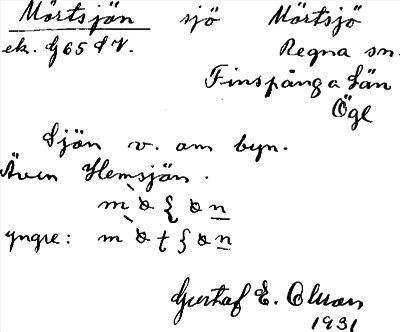 Mörtsjön sjö Mörtsjö
ek. G 65 S V. Regna sn.
Finspånga län
Ögl
Sjön v. om byn.
Även Hemsjön.
yngre:
Gustaf E. Olson
1931